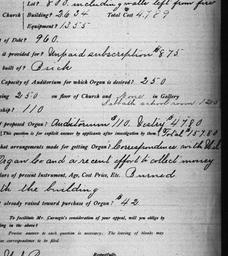 Lot? 800, including walls left from fire
Church { Building? 2634 Total Cost 4789
Equipment? 1355
of Date? 960.
is provided for? Unpaid subscription $875
built of? Brick
Capacity of Auditorium for which Organ is desired? 250
ing 250 on floor of Church and None in Gallery
Sabbath school room 125
ship? 110
proposed Organ? Auditorium 110. Vestry $4780
[This question is for explicit answer by applicants after investigation by them.]
hat arrangements made for getting Organ? Correspondence with
Organ Co and a recent effort to collect money
lars of present Instrument, Age, Cost Price, Etc. Burned
th the building
already raised toward purchase of Organ? $42
To facilitate Mr. Carnegie's consideration of your appeal, will you oblige by
ing in the above?
Precise answer to each question is necessary. The leaving of blanks may
correspondence to be filed.
Respectfully,